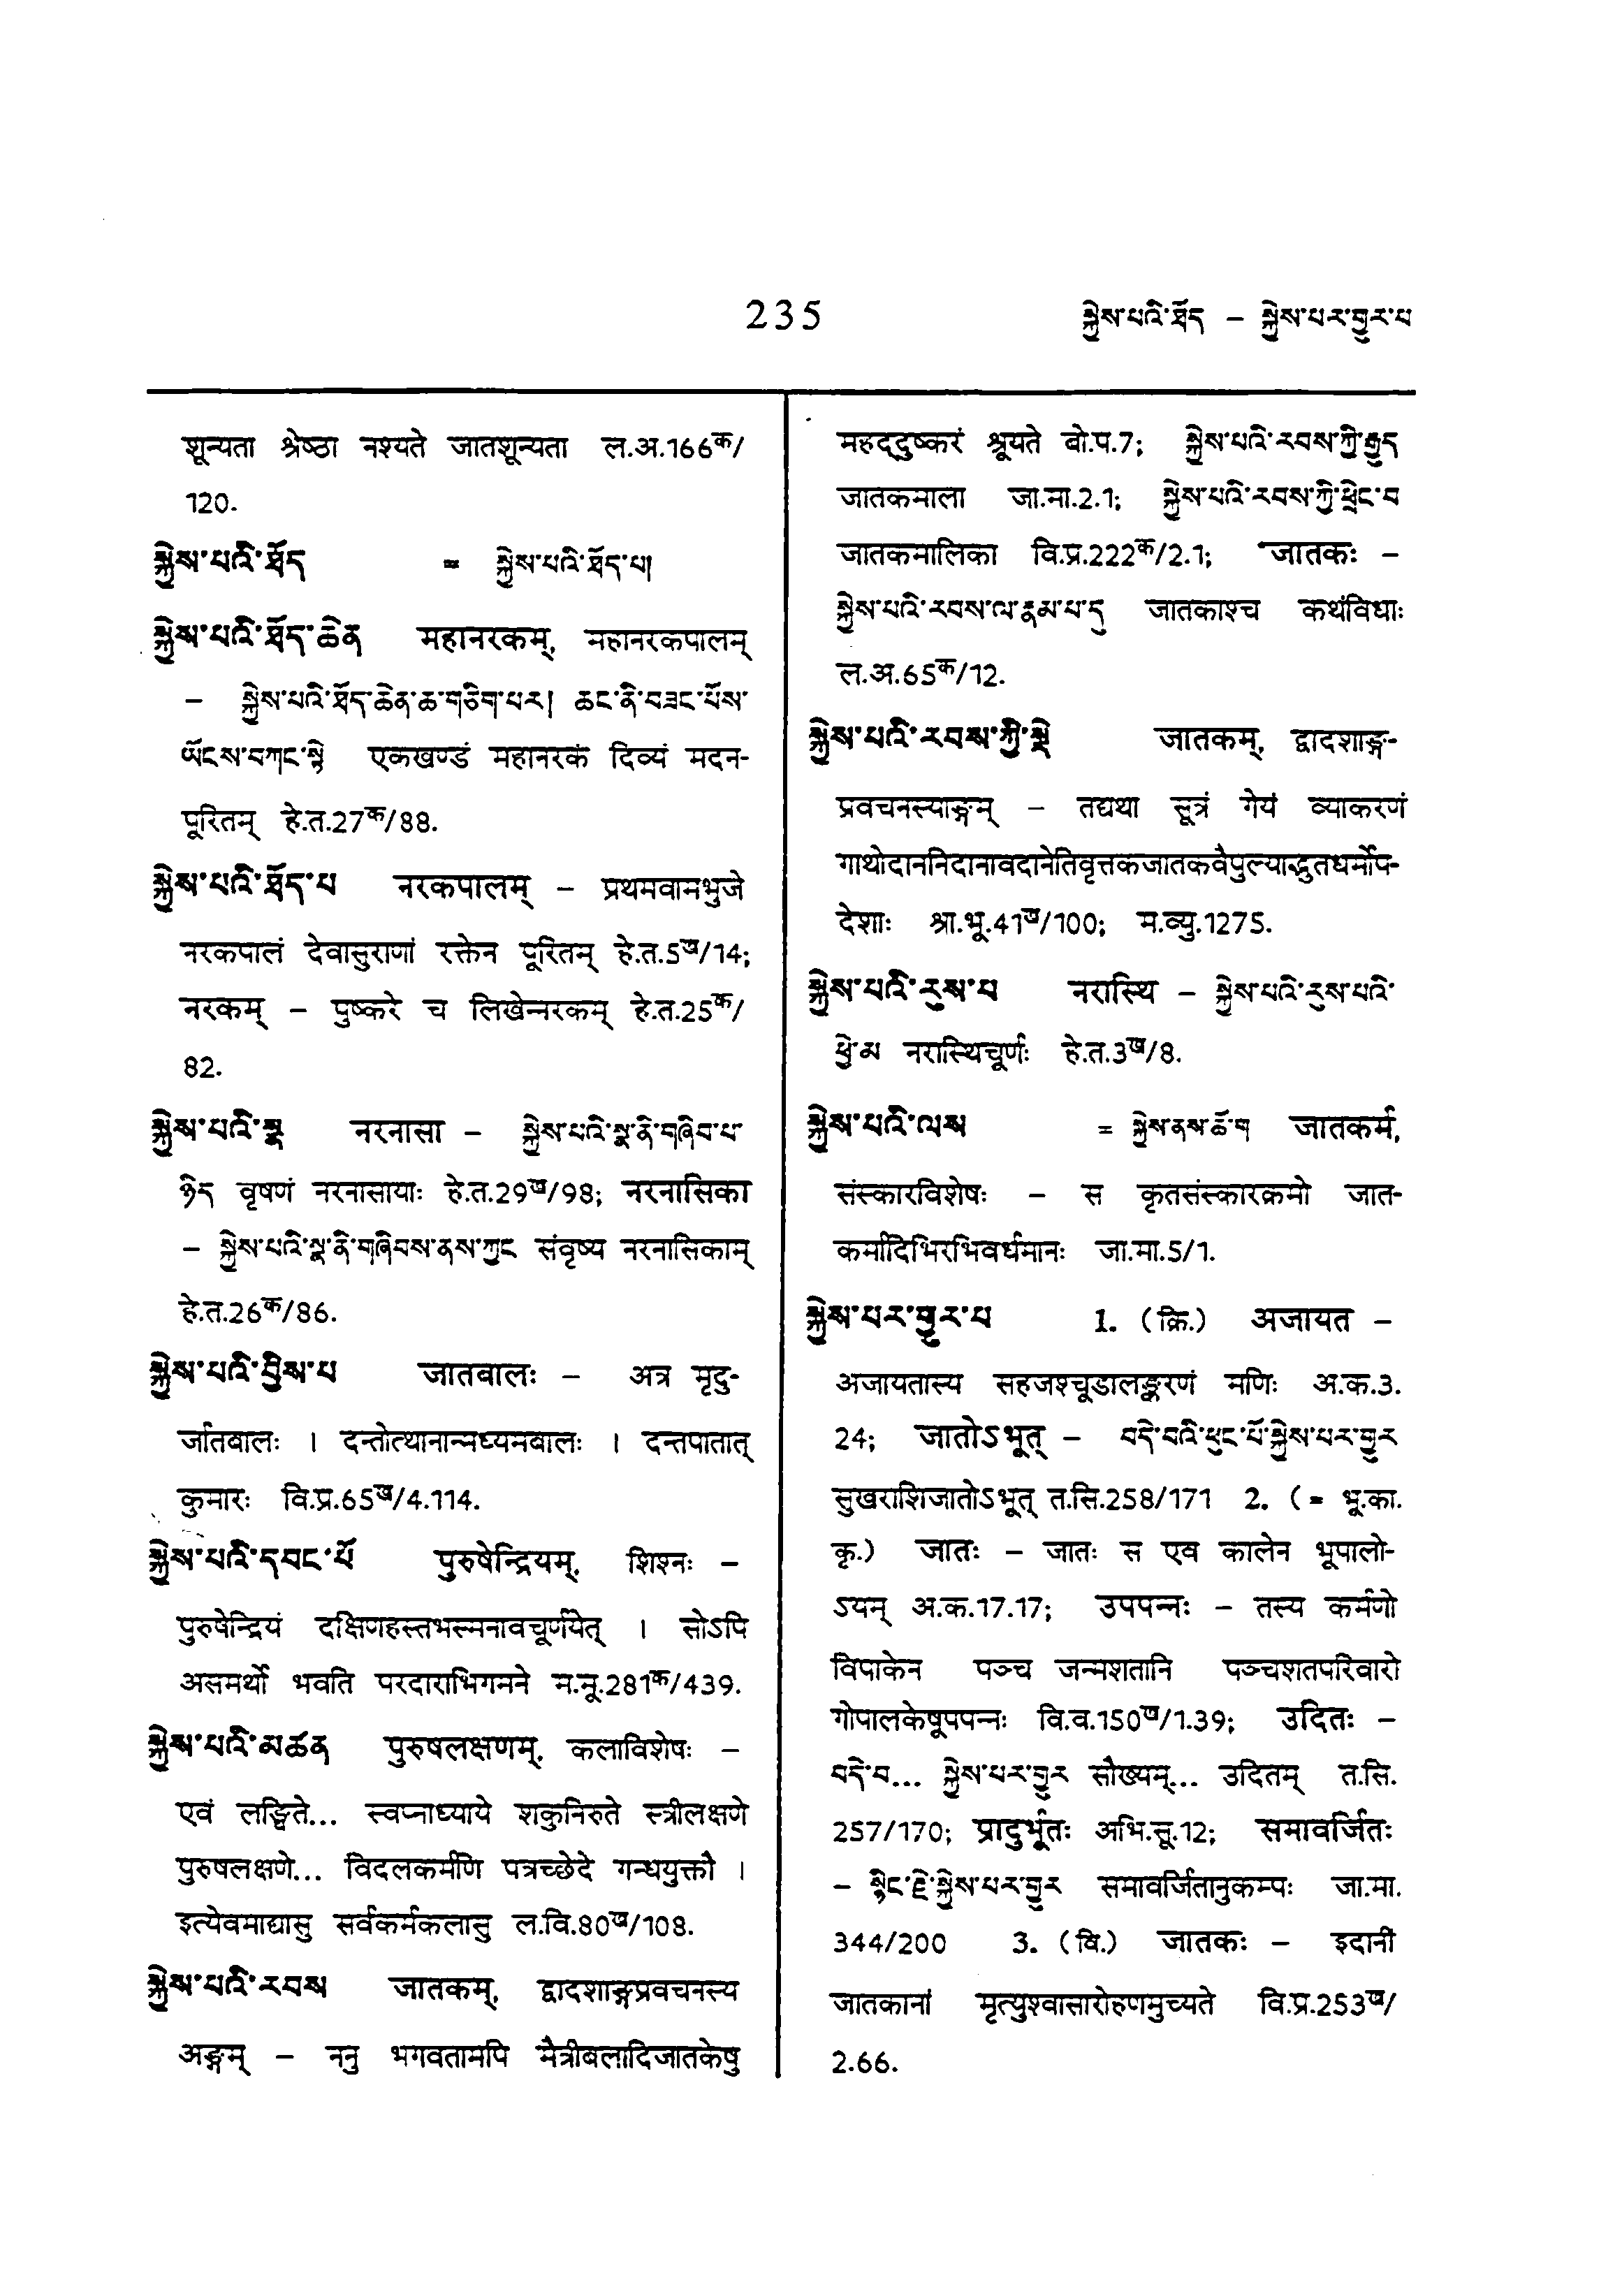 235 སྐྱེས་པའི་ཐོད – སྐྱེས་པར་གྱུར་པ
शून्यता श्रेष्ठा नश्यते जातशून्यता ल.अ.166क/
120.
སྐྱེས་པའི་ཐོད = སྐྱེས་པའི་ཐོད་པ།
སྐྱེས་པའི་ཐོད་ཆེན महानरकम्, महानरकपालम्
– སྐྱེས་པའི་ཐོད་ཆེན་ཆ་གཅིག་པར། ཆང་ནི་བཟང་པོས་
ཡོངས་བཀང་སྟེ एकखण्डं महानरकं दिव्यं मदन-
पूरितम् हे.त.27क/88.
སྐྱེས་པའི་ཐོད་པ नरकपालम् – प्रथमवामभुजे
नरकपालं देवासुराणां रक्तेन पूरितम् हे.त.5ख/14;
नरकम् – पुष्करे च लिखेन्नरकम् हे.त.25क/
82.
སྐྱེས་པའི་སྣ नरनासा – སྐྱེས་པའི་སྣ་ནི་གཞིབ་པ་
ཉིད वृषणं नरनासायाः हे.त.29ख/98; नरनासिका
– སྐྱེས་པའི་སྣ་ནི་གཞིབས་ནས་ཀྱང संवृष्य नरनासिकाम्
हे.त.26क/86.
སྐྱེས་པའི་བྱིས་པ जातबालः – अत्र मृदु-
र्जातबालः । दन्तोत्थानान्मध्यमबालः । दन्तपातात्
कुमारः वि.प्र.65ख/4.114.
སྐྱེས་པའི་དབང་པོ पुरुषेन्द्रियम्, शिश्नः –
पुरुषेन्द्रियं दक्षिणहस्तभस्मनावचूर्णयेत् । सोऽपि
असमर्थो भवति परदाराभिगमने म.मू.281क/439.
སྐྱེས་པའི་མཚན पुरुषलक्षणम्, कलाविशेषः –
एवं लङ्घिते... स्वप्नाध्याये शकुनिरुते स्त्रीलक्षणे
पुरुषलक्षणे... विदलकर्मणि पत्रच्छेदे गन्धयुक्तौ ।
इत्येवमाद्यासु सर्वकर्मकलासु ल.वि.80ख/108.
སྐྱེས་པའི་རབས जातकम्, द्वादशाङ्गप्रवचनस्य
अङ्गम् – ननु भगवतामपि मैत्रीबलादिजातकेषु
महद्दुष्करं श्रूयते बो.प.7; སྐྱེས་པའི་རབས་ཀྱི་རྒྱུད
जातकमाला जा.मा.2.1; སྐྱེས་པའི་རབས་ཀྱི་ཕྲེང་བ
जातकमालिका वि.प्र.222क/2.1; जातकः –
སྐྱེས་པའི་རབས་ལ་རྣམ་པ་དུ जातकाश्च कथंविधाः
ल.अ.65क/12.
སྐྱེས་པའི་རབས་ཀྱི་སྡེ जातकम्, द्वादशाङ्ग-
प्रवचनस्याङ्गम् – तद्यथा सूत्रं गेयं व्याकरणं
गाथोदाननिदानावदानेतिवृत्तकजातकवैपुल्याद्भुतधर्मोप-
देशाः श्रा.भू.41ख/100; म.व्यु.1275.
སྐྱེས་པའི་རུས་པ नरास्थि – སྐྱེས་པའི་རུས་པའི་
ཕྱེ་མ नरास्थिचूर्णः हे.त.3ख/8.
སྐྱེས་པའི་ལས = སྐྱེས་ནས་ཆོ་ག जातकर्म,
संस्कारविशेषः – स कृतसंस्कारक्रमो जात-
कर्मादिभिरभिवर्धमानः जा.मा.5/1.
སྐྱེས་པར་གྱུར་པ 1. (क्रि.) अजायत –
अजायतास्य सहजश्चूडालङ्करणं मणिः अ.क.3.
24; जातोऽभूत् – བདེ་བའི་ཕུང་པོ་སྐྱེས་པར་གྱུར
सुखराशिजातोऽभूत् त.सि.258/171 2. (= भू.का.
कृ.) जातः – जातः स एव कालेन भूपालो-
ऽयम् अ.क.17.17; उपपन्नः – तस्य कर्मणो
विपाकेन पञ्च जन्मशतानि पञ्चशतपरिवारो
गोपालकेषूपपन्नः वि.व.150ख/1.39; उदितः –
བདེ་བ... སྐྱེས་པར་གྱུར सौख्यम्... उदितम् त.सि.
257/170; प्रादुर्भूतः अभि.सू.12; समावर्जितः
– སྙིང་རྗེ་སྐྱེས་པར་གྱུར समावर्जितानुकम्पः जा.मा.
344/200 3. (वि.) जातकः – इदानीं
जातकानां मृत्युश्वासारोहणमुच्यते वि.प्र.253ख/
2.66.